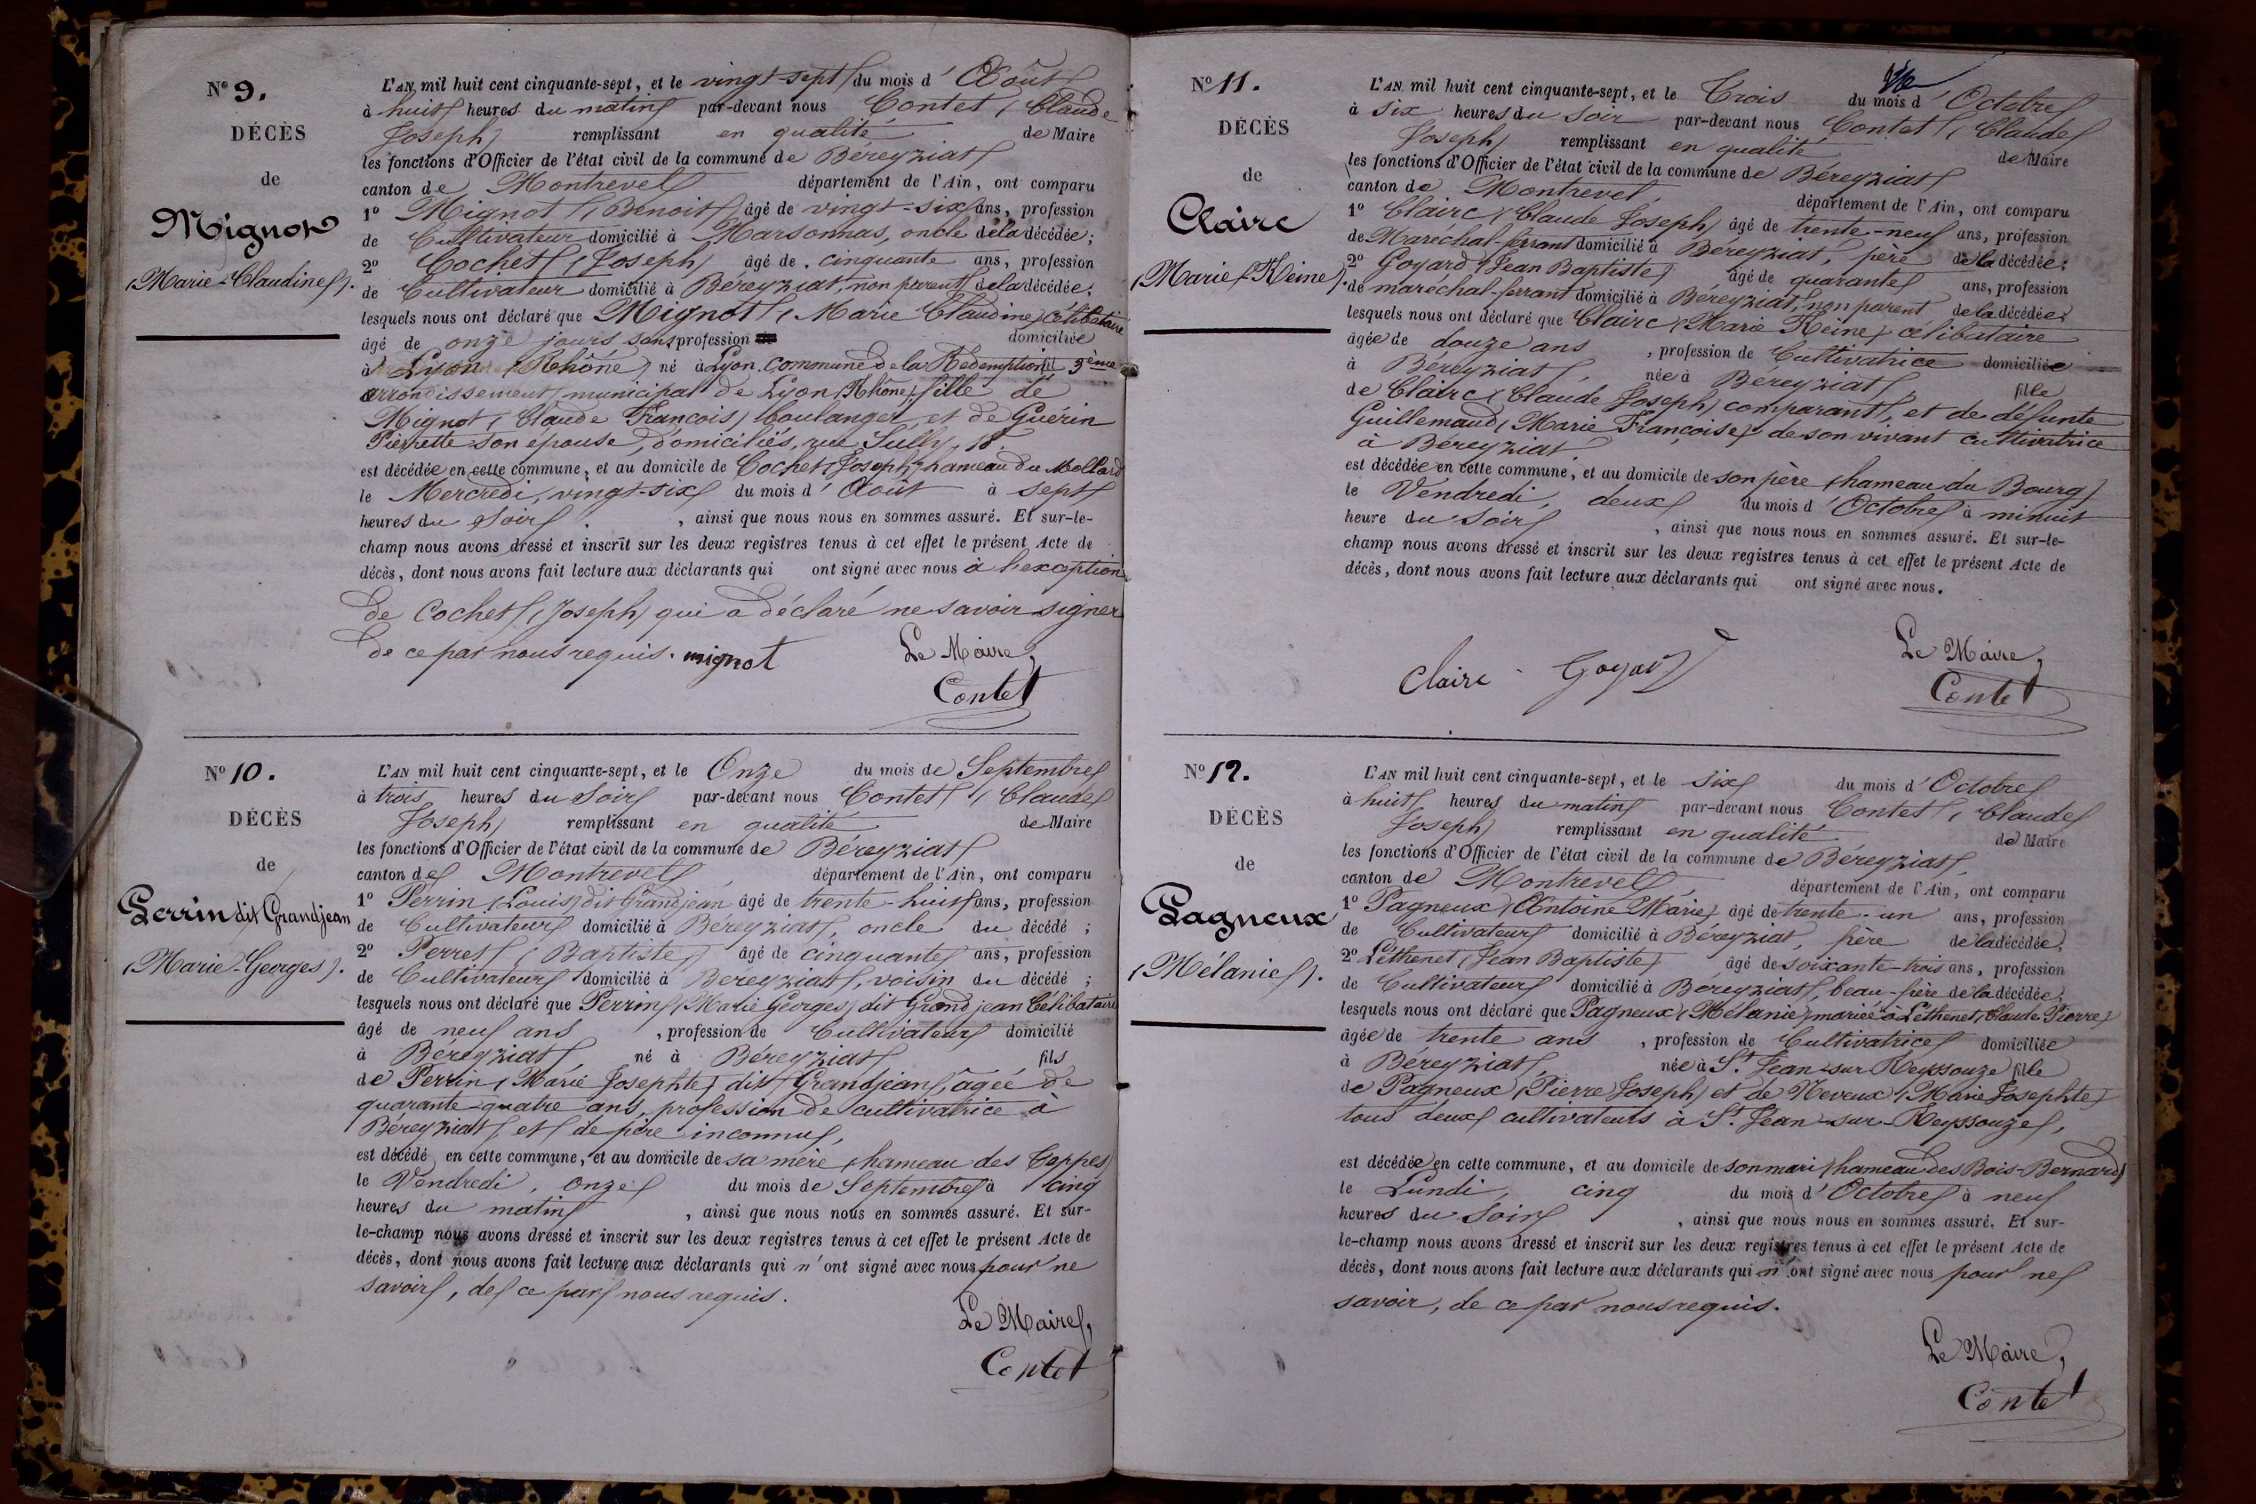 N° 9.
DÉCÈS
de
Mignot
(Marie-Claudine).
L'AN mil huit cent cinquante-sept, et le vingt-sept du mois d'Août
à huit heures du matin par-devant nous Contet, (Claude
Joseph) remplissant en qualité de Maire
les fonctions d'Officier de l'état civil de la commune de Béreyziat
canton de Montrevel département de l'Ain, ont comparu
1° Mignot (Benoit) âgé de vingt-six ans, profession
de Cultivateur domicilié à Marsonnas, oncle de la décédée;
2° Cochet (Joseph) âgé de cinquante ans, profession
de Cultivateur domicilié à Béreyziat, non parent de la décédée;
lesquels nous ont déclaré que Mignot (Marie Claudine) célibataire
âgé de onze jours sans profession domiciliée
à Lyon (Rhône) né à Lyon, commune de la Rédemption 3ème
arrondissement municipal de Lyon (Rhône) fille de
Mignot (Claude François) boulanger, et de Guérin
Pierrette son épouse, domiciliés, rue Sully, 18.
est décédée en cette commune, et au domicile de Cochet (Joseph) hameau du Mollard
le Mercredi, vingt-six du mois d'Août à sept
heures du soir, ainsi que nous nous en sommes assuré. Et sur-le-
champ nous avons dressé et inscrit sur les deux registres tenus à cet effet le présent Acte de
décès, dont nous avons fait lecture aux déclarants qui ont signé avec nous à l'exception
de Cochet (Joseph) qui a déclaré ne savoir signer
de ce par nous requis. mignot Le Maire,
Contet
N° 10.
DÉCÈS
de
Perrin dit Grandjean
(Marie-Georges).
L'AN mil huit cent cinquante-sept, et le Onze du mois de Septembre
à trois heures du soir par-devant nous Contet, (Claude
Joseph) remplissant en qualité de Maire
les fonctions d'Officier de l'état civil de la commune de Béreyziat
canton de Montrevel département de l'Ain, ont comparu
1° Perrin (Louis) dit Grandjean âgé de trente-huit ans, profession
de Cultivateur domicilié à Béreyziat, oncle du décédé;
2° Perret (Baptiste) âgé de cinquante ans, profession
de Cultivateur domicilié à Béreyziat, voisin du décédé;
lesquels nous ont déclaré que Perrin (Marie Georges) dit Grandjean Célibataire
âgé de neuf ans, profession de Cultivateur domicilié
à Béreyziat, né à Béreyziat, fils
de Perrin (Marie Josephte) dit Grandjean, âgée de
quarante-quatre ans, profession de cultivatrice à
Béreyziat, et de père inconnu,
est décédé en cette commune, et au domicile de sa mère (hameau des Carpes)
le Vendredi, onze du mois de Septembre à cinq
heures du matin, ainsi que nous nous en sommes assuré. Et sur-
le-champ nous avons dressé et inscrit sur les deux registres tenus à cet effet le présent Acte de
décès, dont nous avons fait lecture aux déclarants qui n'ont signé avec nous pour ne
savoir, de ce par nous requis.
Le Maire,
Contet
N° 11.
DÉCÈS
de
Claire
(Marie-Reine).
L'AN mil huit cent cinquante-sept, et le Trois du mois d'Octobre
à six heures du soir par-devant nous Contet, (Claude
Joseph) remplissant en qualité de Maire
les fonctions d'Officier de l'état civil de la commune de Béreyziat
canton de Montrevel département de l'Ain, ont comparu
1° Clairc (Claude Joseph) âgé de trente-neuf ans, profession
de Maréchal-ferrant domicilié à Béreyziat, père de la décédée;
2° Goyard (Jean Baptiste) âgé de quarante ans, profession
de maréchal-ferrant domicilié à Béreyziat, non parent de la décédée;
lesquels nous ont déclaré que Clairc (Marie Reine) célibataire
âgée de douze ans, profession de Cultivatrice domiciliée
à Béreyziat, née à Béreyziat, fille
de Clairc (Claude Joseph) comparant, et de défunte
Guillemaud (Marie Françoise) de son vivant cultivatrice
à Béreyziat
est décédée en cette commune, et au domicile de son père (hameau du Bourg)
le Vendredi, deux du mois d'Octobre à minuit
heure du soir, ainsi que nous nous en sommes assuré. Et sur-le-
champ nous avons dressé et inscrit sur les deux registres tenus à cet effet le présent Acte de
décès, dont nous avons fait lecture aux déclarants qui ont signé avec nous.
Le Maire,
Claire Goyard Contet
N° 12.
DÉCÈS
de
Pagneux
(Mélanie).
L'AN mil huit cent cinquante-sept, et le six du mois d'Octobre
à huit heures du matin par-devant nous Contet, (Claude
Joseph) remplissant en qualité de Maire
les fonctions d'Officier de l'état civil de la commune de Béreyziat,
canton de Montrevel département de l'Ain, ont comparu
1° Pagneux (Antoine Marie) âgé de trente-un ans, profession
de Cultivateur domicilié à Béreyziat, frère de la décédée;
2° Léthenet (Jean Baptiste) âgé de soixante-trois ans, profession
de Cultivateur domicilié à Béreyziat, beau-frère de la décédée,
lesquels nous ont déclaré que Pagneux (Mélanie) mariée à Léthenet (Claude Pierre)
âgée de trente ans, profession de Cultivatrice domiciliée
à Béreyziat, née à St. Jean-sur-Reyssouze fille
de Pagneux (Pierre Joseph) et de Neveux (Marie Josephte)
tous deux cultivateurs à St. Jean-sur-Reyssouze,
est décédée en cette commune, et au domicile de son mari (hameau des Bois-Bernard)
le Lundi, cinq du mois d'Octobre à neuf
heures du soir, ainsi que nous nous en sommes assuré. Et sur-
le-champ nous avons dressé et inscrit sur les deux registres tenus à cet effet le présent Acte de
décès, dont nous avons fait lecture aux déclarants qui n'ont signé avec nous pour ne
savoir, de ce par nous requis.
Le Maire,
Contet